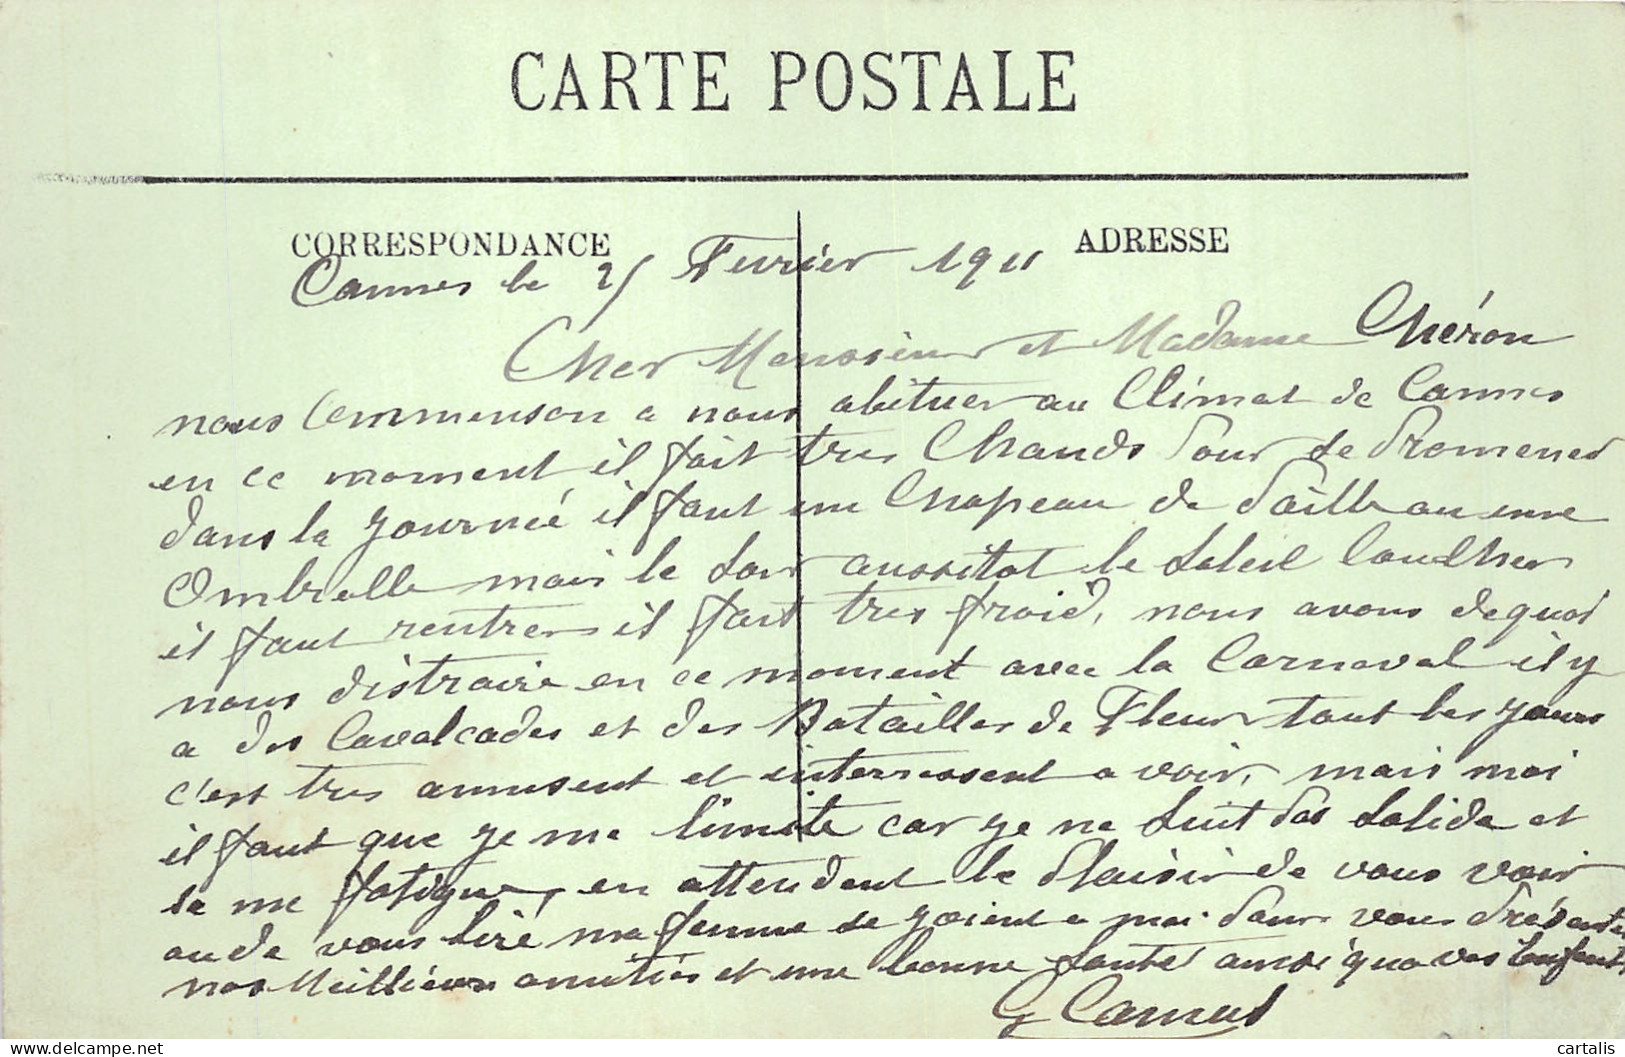 CARTE POSTALE
CORRESPONDANCE
ADRESSE
Cannes le 25 Fevrier 1911
Cher Monssieur et Madame Chéron
nous Commenson a nous abituer au Climat de Cannes
en ce moment il fait tres Chauds Pour se Promener
dans la journeé il faut un Chapeau de Paille au une
Ombrelle mais le Soir aussitot le Soleil Coudher
il faut rentrer il fait tres froid, nous avons de quoi
nous distraire en ce moment avec la Carnaval il y
a des Cavalcades et des Batailles de Fleur tout les jours
c'est tres amusent et interressent a voir, mais moi
il faut que je me limite car je ne Suit Pas Solide et
sa me fatigue, en attendent le Plaisir de vous voir
au de vous liré ma femme se joient a moi Pour vous Présenter
nos Meillieurs amitiés et une bonne Santé ainsi que vos Enfants
G Camus
cartalis